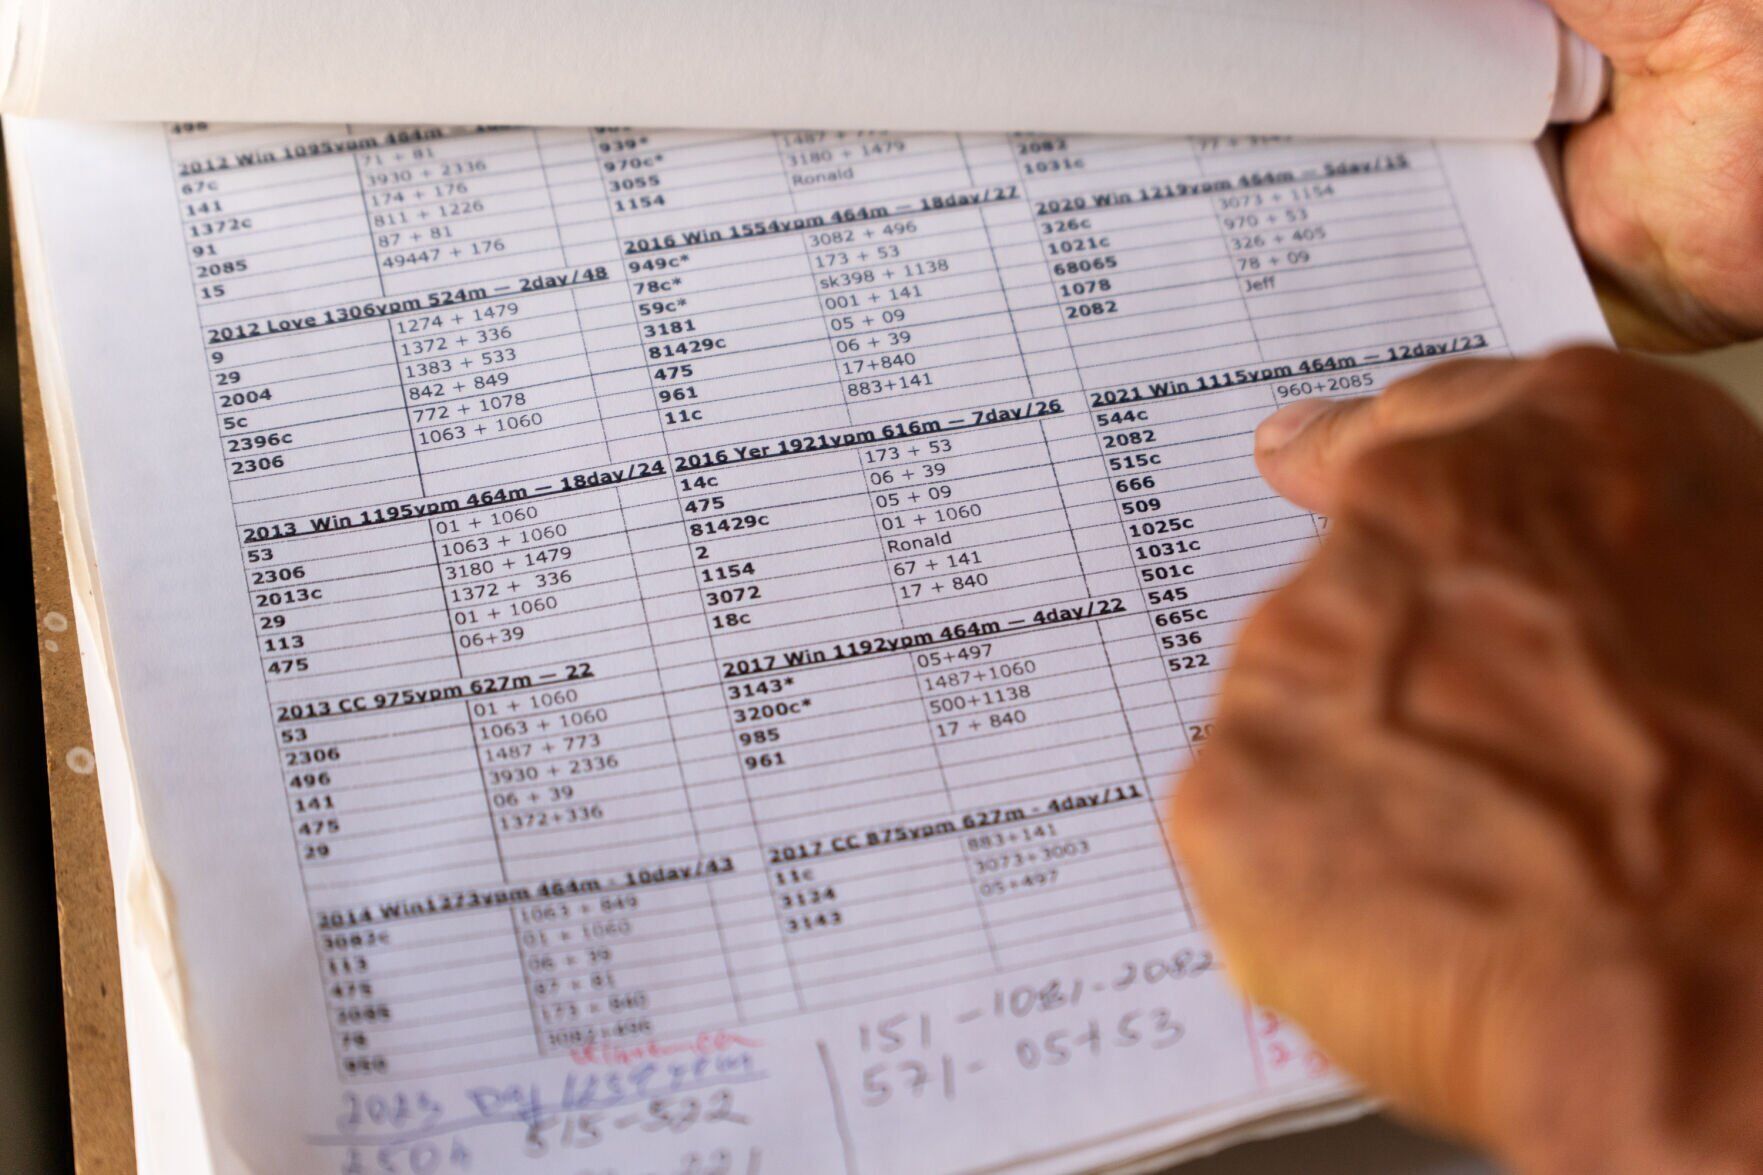 496
2012 Win 1095ypm 464m –
67c 71 + 81
141 3930 + 2336
1372c 174 + 176
91 811 + 1226
2085 87 + 81
15 49447 + 176
2012 Love 1306ypm 524m — 2day/48
9 1274 + 1479
29 1372 + 336
2004 1383 + 533
5c 842 + 849
2396c 772 + 1078
2306 1063 + 1060
2013 Win 1195ypm 464m — 18day/24
53 01 + 1060
2306 1063 + 1060
2013c 3180 + 1479
29 1372 + 336
113 01 + 1060
475 06+39
2013 CC 975ypm 627m — 22
53 01 + 1060
2306 1063 + 1060
496 1487 + 773
141 3930 + 2336
475 06 + 39
29 1372+336
2014 Win1273ypm 464m - 10day/43
3082c 1063 + 849
113 01 + 1060
475 06 + 39
87 + 81
78 173 + 840
3082+496
939* 1487 + 773
970c* 3180 + 1479
3055 Ronald
1154
2016 Win 1554ypm 464m — 18day/27
949c* 3082 + 496
78c* 173 + 53
59c* sk398 + 1138
3181 001 + 141
81429c 05 + 09
475 06 + 39
961 17+840
11c 883+141
2016 Yer 1921ypm 616m — 7day/26
14c 173 + 53
475 06 + 39
81429c 05 + 09
2 01 + 1060
1154 Ronald
3072 67 + 141
18c 17 + 840
2017 Win 1192ypm 464m — 4day/22
3143* 05+497
3200c* 1487+1060
985 500+1138
961 17 + 840
2017 CC 875ypm 627m - 4day/11
11c 883+141
3134 3073+3003
3143 05+497
2082
1031c
2020 Win 1219ypm 464m — 5day/15
326c 3073 + 1154
1021c 970 + 53
68065 326 + 405
1078 78 + 09
2082 Jeff
2021 Win 1115ypm 464m — 12day/23
544c 960+2085
2082
515c
666
509
1025c
1031c
501c
545
665c
536
522
20
151 - 1081 - 2082
571 - 05+53
2023
515-522